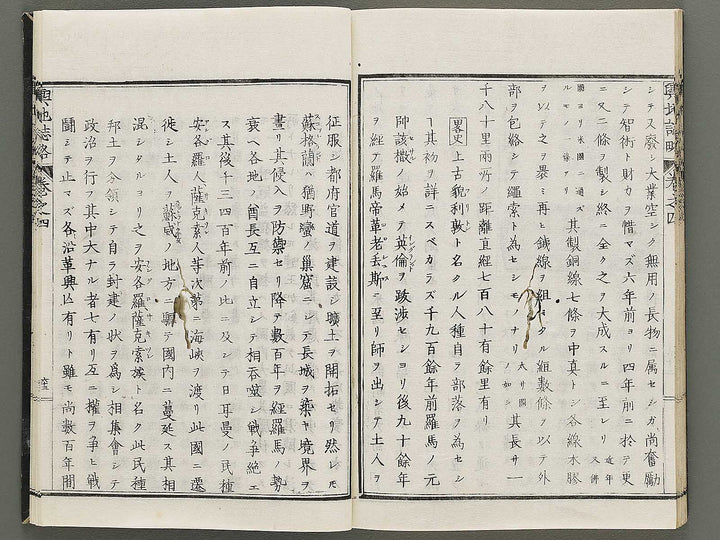 シテス廢シ大業空シク無用ノ長物ニ属セシガ尚奮勵
シテ智術ト財カヲ惜マズ六年前ヨリ四年前ニ於テ更
ニ又二條ヲ製シ終ニ全ク之ヲ大成スルニ至レリ
其製銅線七條ヲ中真トシ各線木膠
ヲ以テ之ヲ暴ミ再ヒ鐵線ヲ組タル組數條ヲ以テ外
部ヲ包絡シテ繩索ト為セシモノナリ 其長サ一
千八十里兩所ノ距離直經七百八十有餘里有リ
畧史 上古貌利敦ト名クル人種自ラ部落ヲ為セシ
ヿ其初ヲ詳ニスベカラズ千九百餘年前羅馬ノ元
帥該撒ノ始メテ英倫ヲ跋渉セシヨリ後九十餘年
ヲ経テ羅馬帝革老丢斯ニ至リ師ヲ出シテ土人ヲ
輿地誌略 卷之四
征服シ都府官道ヲ建設シ曠土ヲ開拓セリ然レモ
蘇格蘭ハ猶野蠻ノ巢窟ニシテ長城ヲ築キ境界ヲ
畫リ其侵入ヲ防禦セリ降テ數百年ヲ経羅馬ノ勢
衰ヘ各地ノ酋長互ニ自立シテ相吞噬シ戰爭絶エ
ス其後千三四百年前ノ比ニ及シテ日耳曼ノ民種
安各羅人薩克索人等次第ニ海峽ヲ渡リ此國ニ遷
徙シ土人ヲ蘇威ノ地方ニ驅テ國内ニ蔓延ス其相
混シタルヨリ之ヲ安各羅薩克索族ト名ク此民種
邦土ヲ分領シテ自ラ封建ノ状ヲ為シ相集會シテ
政治ヲ行ヲ其中大ナル者七有リ互ニ權ヲ爭ヒ戰
鬪シテ止マズ各沿革興亾有リト雖モ尚數百年間
輿地誌略 卷之四